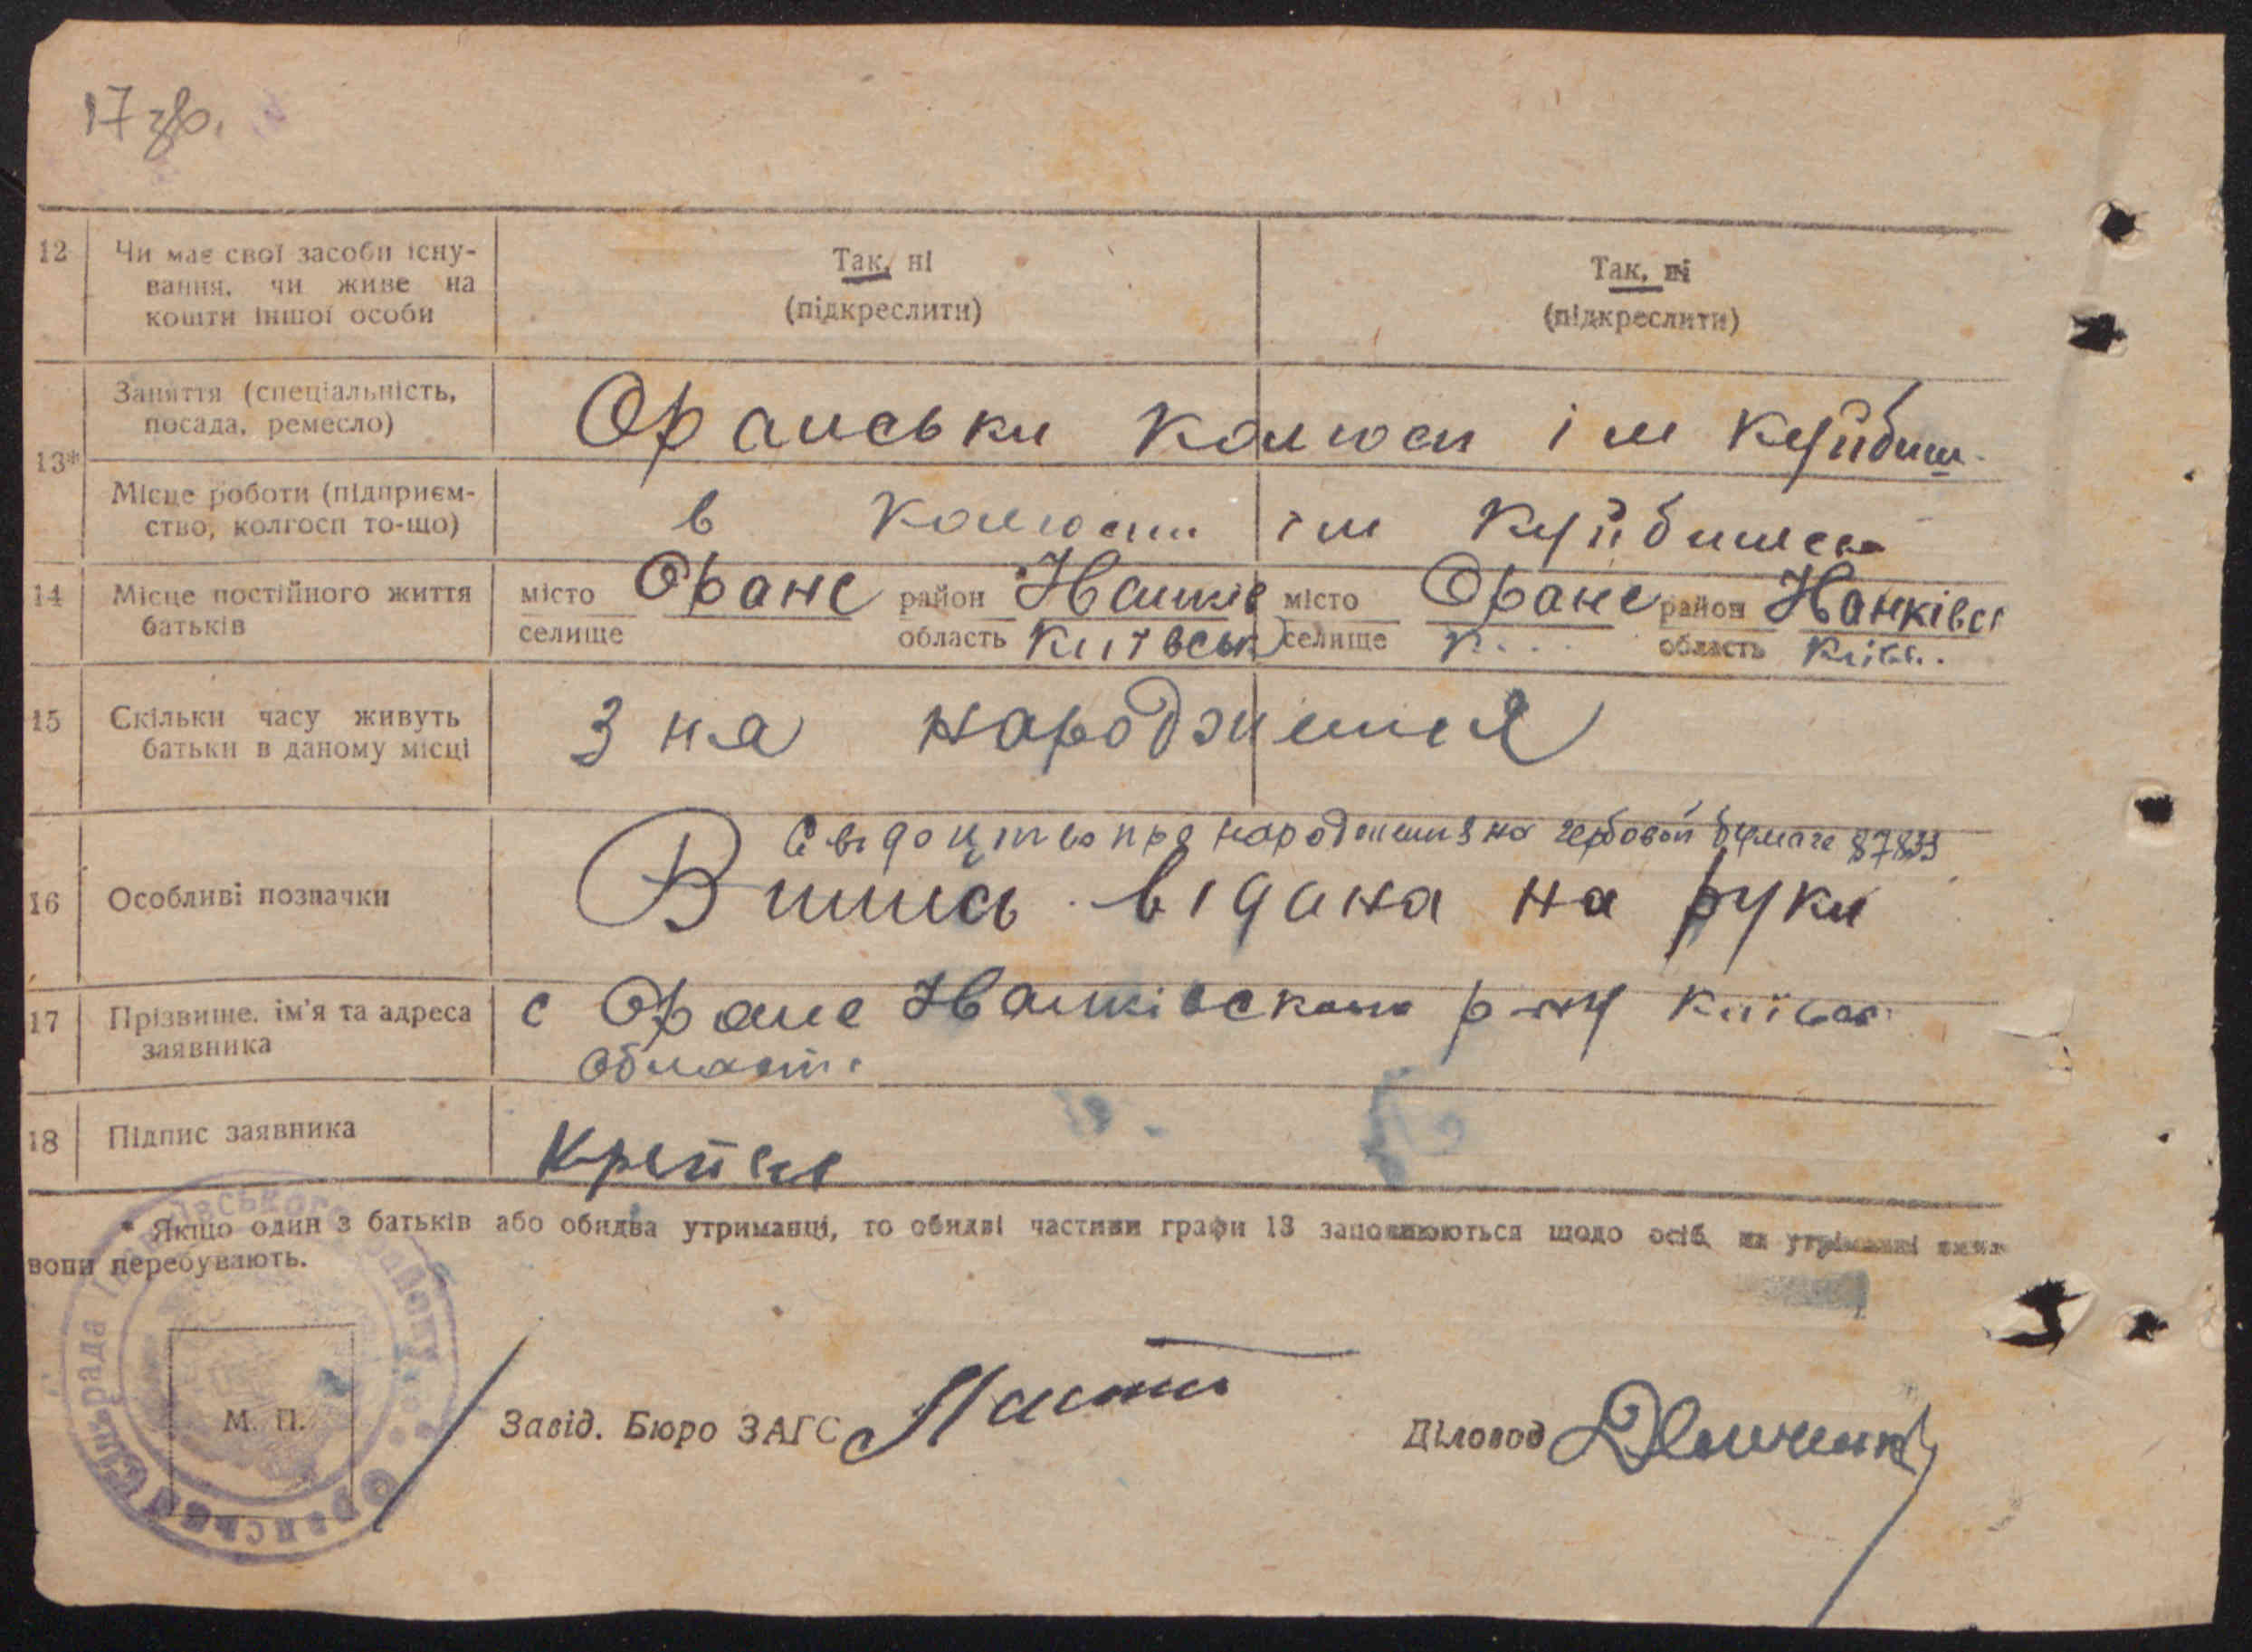 17 зв.
12 Чи має свої засоби існу-
вання, чи живе на
кошти іншої особи
Так, ні
(підкреслити)
Так, ні
(підкреслити)
13*
Заняття (спеціальність,
посада, ремесло)
Ораньски колгосп ім Куйбиш.
Місце роботи (підприєм-
ство, колгосп то-що)
в колгоспи ім Куйбишев
14 Місце постійного життя
батьків
місто Оране район Іванків
селище область Київськ
місто Оране район Іванківсь
селище К... область Київ.
15 Скільки часу живуть
батьки в даному місці
З на народження
16 Особливі позначки
Свідоцтво про народження на гербовой бумаге 87833
Випись відана на руки
17 Прізвище, ім'я та адреса
заявника
с Оране Іванківского р-ну Київс.
області
18 Підпис заявника
* Якщо один з батьків або обидва утриманці, то обидві частини графи 13 заповнюються щодо осіб, на утриманні яких
вони перебувають.
М. П.
Завід. Бюро ЗАГС
Діловод
Оранська Сільрада Іванківського району